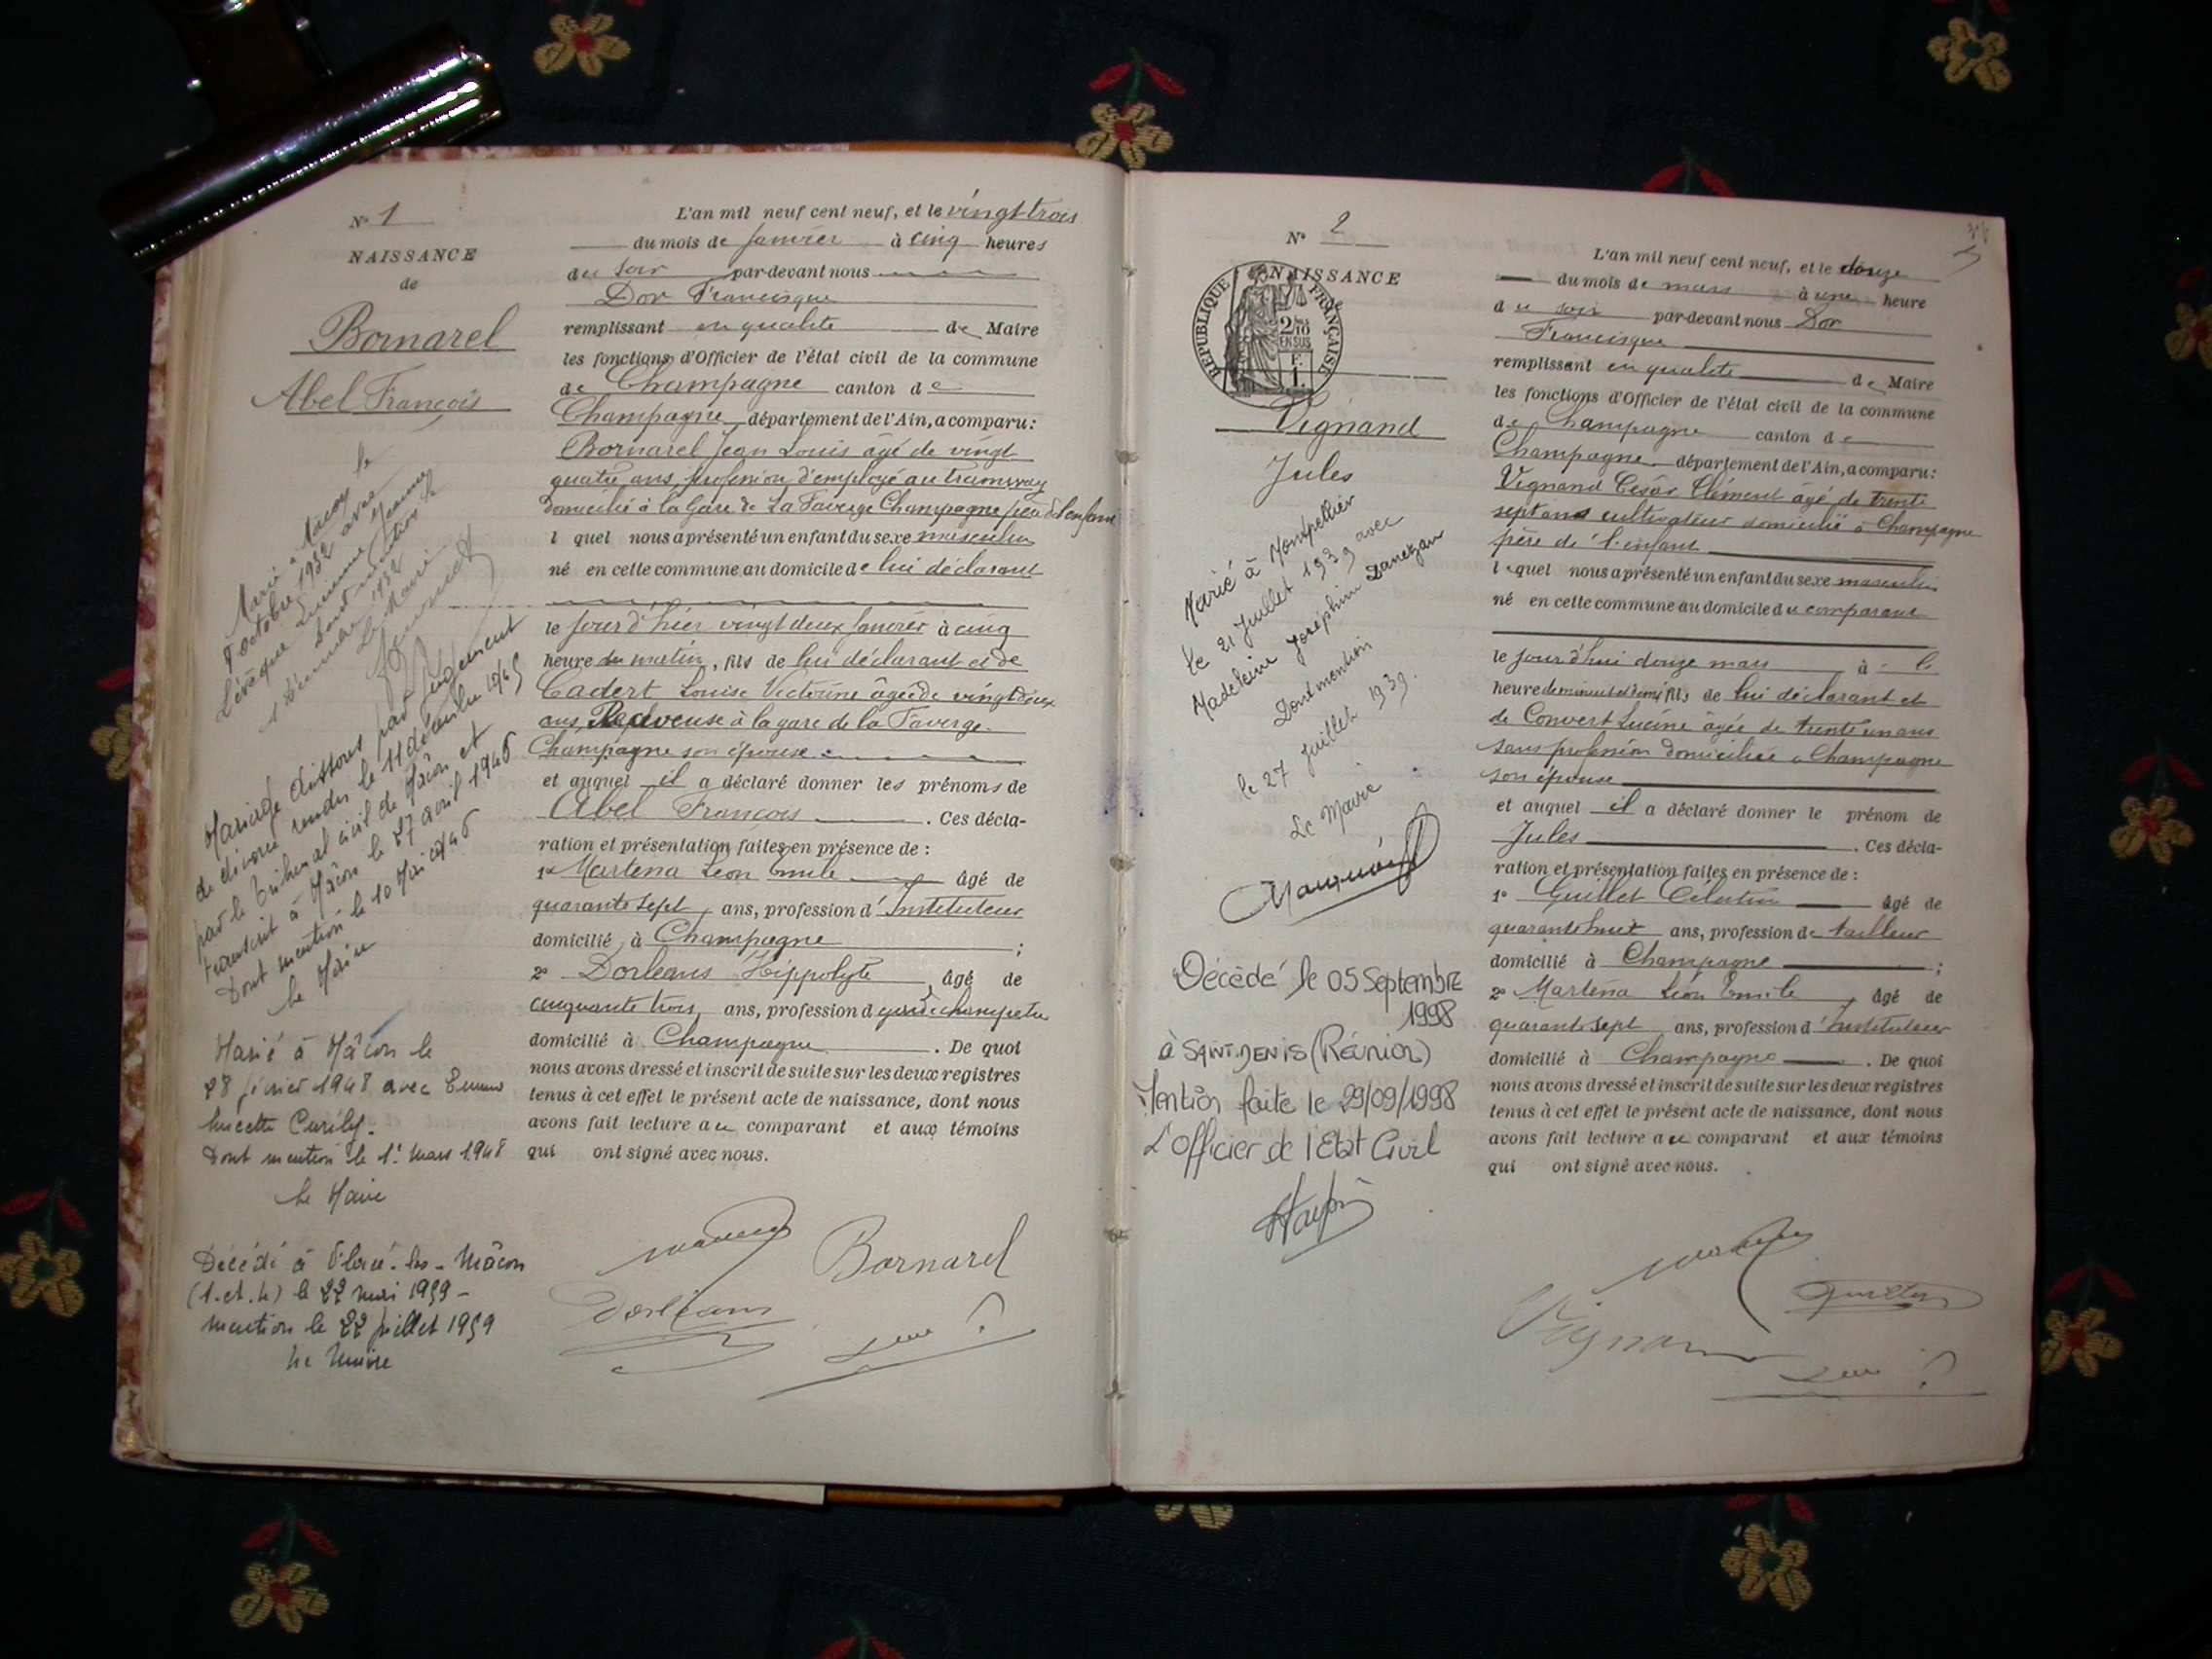 N° 1
NAISSANCE
de
Bornarel
Abel François
Marié à Mâcon le
octobre 1932 avec
Lévèque
Dont mention le
1932
Le Maire
Mariage dissous par jugement
de divorce rendu le 11 décembre 1945
par le Tribunal civil de Mâcon et
transcrit à Mâcon le 27 avril 1946
Dont mention le 10 Mai 1946
Le Maire
Marié à Mâcon le
28 février 1948 avec
Lucette
Dont mention le 1er Mars 1948
Le Maire
Décédé à Flacé-les-Mâcon
(S.et.L) le 22 mai 1959 -
mention le 22 juillet 1959
Le Maire
L'an mil neuf cent neuf, et le vingt trois
du mois de Janvier à cinq heures
du soir par-devant nous
Dor Francisque
remplissant en qualité de Maire
les fonctions d'Officier de l'état civil de la commune
de Champagne canton de
Champagne département de l'Ain, a comparu:
Bornarel Jean Louis âgé de vingt
quatre ans, profession d'employé au tramway
domicilié à la Gare de La Faverge Champagne père de l'enfant
l quel nous a présenté un enfant du sexe masculin
né en cette commune au domicile de lui déclarant
le jour d'hier vingt deux Janvier à cinq
heure du matin, fils de lui déclarant et de
Cadert Louise Victorine âgée de vingt deux
ans, Receveuse à la gare de la Faverge
Champagne son épouse
et auquel il a déclaré donner les prénoms de
Abel François . Ces décla-
ration et présentation faites en présence de :
1° Martena Léon Emile âgé de
quarante sept ans, profession d'Instituteur
domicilié à Champagne ;
2° Dorléans Hippolyte , âgé de
cinquante trois ans, profession de garde champêtre
domicilié à Champagne . De quoi
nous avons dressé et inscrit de suite sur les deux registres
tenus à cet effet le présent acte de naissance, dont nous
avons fait lecture au comparant et aux témoins
qui ont signé avec nous.
Bornarel
Dorléans
N° 2
NAISSANCE
REPUBLIQUE FRANÇAISE
2/10
EN SUS
F.
1.
Vignand
Jules
Marié à Montpellier
le 21 Juillet 1939 avec
Madeleine Joséphine
Dont mention
le 27 Juillet 1939.
Le Maire
Décédé le 05 Septembre
1998
à SAINT.DENIS (Réunion)
Mention faite le 29/09/1998
L'Officier de l'Etat Civil
L'an mil neuf cent neuf, et le douze
du mois de mars à une heure
du soir par-devant nous Dor
Francisque
remplissant en qualité de Maire
les fonctions d'Officier de l'état civil de la commune
de Champagne canton de
Champagne département de l'Ain, a comparu:
Vignand César Clément âgé de trente
sept ans cultivateur domicilié à Champagne
père de l'enfant
lequel nous a présenté un enfant du sexe masculin
né en cette commune au domicile du comparant
le jour d'hui douze mars à
heure de minuit et demi fils de lui déclarant et
de Convert Lucine âgée de trente un ans
sans profession domiciliée à Champagne
son épouse
et auquel il a déclaré donner le prénom de
Jules . Ces décla-
ration et présentation faites en présence de :
1° Guillet Célestin âgé de
quarante huit ans, profession de tailleur
domicilié à Champagne ;
2° Martena Léon Emile , âgé de
quarante sept ans, profession d'Instituteur
domicilié à Champagne . De quoi
nous avons dressé et inscrit de suite sur les deux registres
tenus à cet effet le présent acte de naissance, dont nous
avons fait lecture au comparant et aux témoins
qui ont signé avec nous.